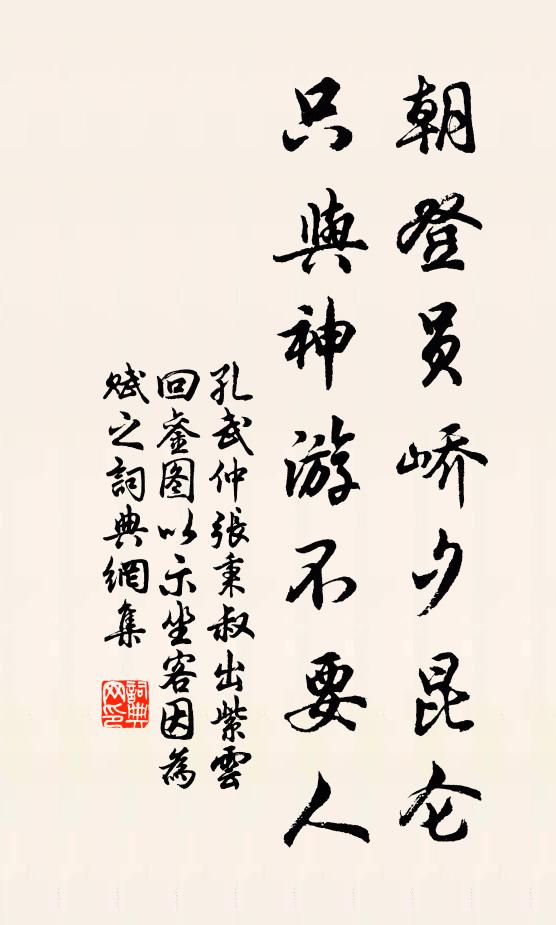 朝登员峤夕昆仑
只與神游不要人
孔武仲張秉叔出紫雲
回崟图以示坐客因為
赋之詞典網集
詞典網印